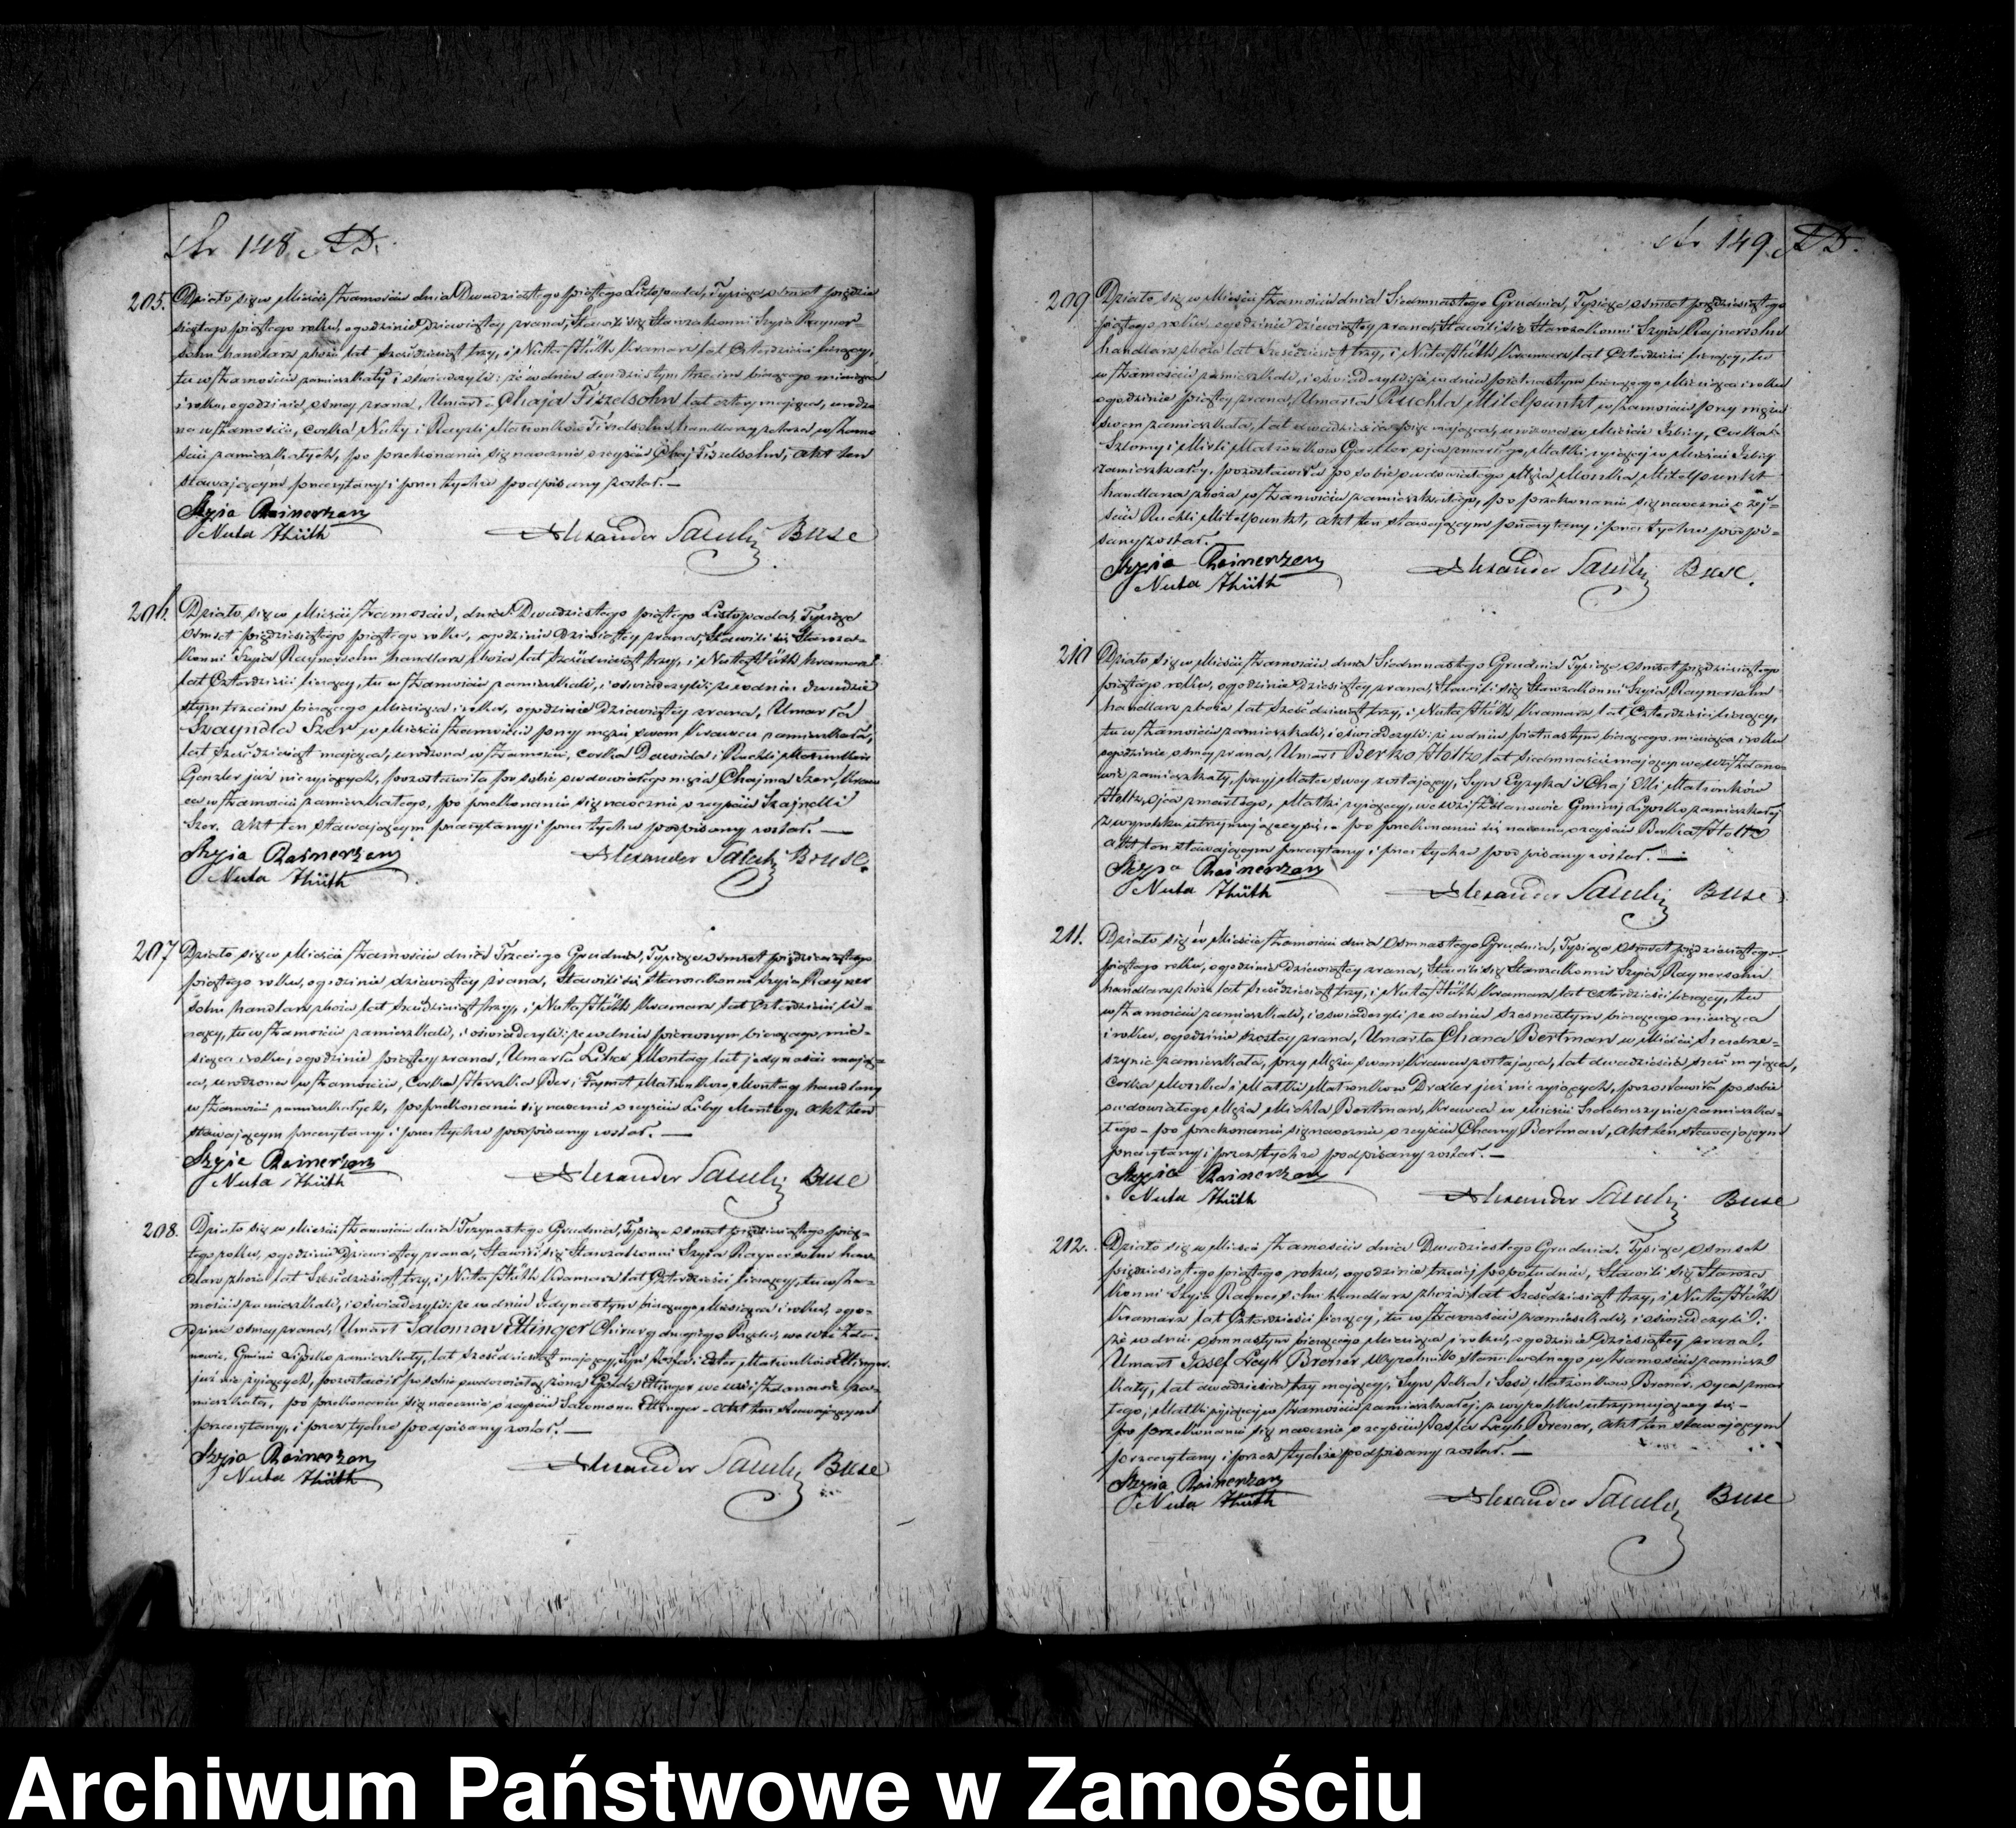 str 148.
205. Działo się w Mieście Zamościu dnia Dwudziestego piątego Listopada, Tysiąc osmset pięćdzie
siątego piątego roku, o godzinie Dziewiątey zrana, Stawili się Starozakonni Szyia Rayner=
sohn handlarz zboża lat sześćdziesiąt trzy, i Nuta Hüth Kramarz lat Czterdzieści liczący,
tu w Zamościu zamieszkały i oświadczyli: że w dniu dwudziestym trzecim bieżącego miesiąca
i roku, o godzinie osmey zrana, Umarła Chaja Fiszelsohn lat cztery mająca, urodzo
na w Zamościu, corka Nuty i Małżonków Fiszelsohn handlarzy w Zamo
ściu zamieszkałych, po przekonaniu się naocznie o zejściu Chaj Fiszelsohn, akt ten
stawającym przeczytany i przez tychże podpisany został. —
Szyia Rainerzon
Nuta Hüth Alexander Buse
206. Działo się w Mieście Zamościu, dnia Dwudziestego piątego Listopada, Tysiąc
osmset pięćdziesiątego piątego roku, o godzinie Dziesiątey zrana, Stawili się Staroza=
konni Szyia Raynersohn handlarz zboża lat sześćdziesiąt trzy, i Nuta Hüth kramarz
lat Czterdzieści liczący, tu w Zamościu zamieszkali, i oświadczyli: że w dniu dwudzie
stym trzecim bieżącego Miesiąca i roku, o godzinie Dziewiątey zrana, Umarła
Szayndla Szer w Mieście Zamościu przy mężu swoim Krawcu zamieszkała,
lat sześćdziesiąt mająca, urodzona w Zamościu, corka Dawida i Ruchli Małżonków
Genzler już nie żyiących, pozostawiła po sobie owdowiałego męża Chajma Szer, Kraw
ca w Zamościu zamieszkałego, po przekonaniu się naocznie o zejściu Szajndli
Szer. Akt ten stawającym przeczytany i przez tychże podpisany został. —
Szyia Rainerzon
Nuta Hüth Alexander Buse.
207 Działo się w Mieście Zamościu dnia Trzeciego Grudnia, Tysiąc osmset pięćdziesiątego
piątego roku, o godzinie dziewiątey zrana, Stawili się Starozakonni Szyia Rayner
sohn handlarz zboża lat sześćdziesiąt trzy, i Nuta Hüth Kramarz lat Czterdzieści li=
czący, tu w Zamościu zamieszkali, i oświadczyli: że w dniu pierwszym bieżącego mie=
siąca i roku, o godzinie piątey zrana, Umarła Liba Montag lat jedynaście mają
ca, urodzona w Zamościu, Corka Herszka Ber i Frymet Małżonków Montag handlarzy
w Zamościu zamieszkałych, po przekonaniu się naocznie o zejściu Liby Montag, akt ten
stawającym przeczytany i przez tychże podpisany został. —
Szyia Rainerzon
Nuta Hüth Alexander Buse
208. Działo się w Mieście Zamościu dnia Trzynastego Grudnia, Tysiąc osmset pięćdziesiątego pią=
tego roku, o godzinie Dziewiątey zrana, Stawili się Starozakonni Szyia Raynersohn han=
dlarz zboża lat Sześćdziesiąt trzy, i Nuta Hüth Kramarz lat Czterdzieści liczący, tu w Za=
mościu zamieszkali, i oświadczyli: że w dniu Jedynastym bieżącego Miesiąca i roku, o go=
dzinie osmey zrana, Umarł Salomon Ettinger Chirurg drugiego Rzędu, we wsi Zda=
nowie, Gminie Lipsko zamieszkały, lat sześćdziesiąt mający, syn i Ester Małżonków Ettinger
już nie żyiących, pozostawił po sobie owdowiałą żonę Goldę Ettinger we wsi Zdanowie za=
mieszkałą, po przekonaniu się naocznie o zejściu Salomona Ettinger - Akt ten stawającym
przeczytany, i przez tychże podpisany został. —
Szyia Rainerzon
Nuta Hüth Alexander Buse
str 149.
209 Działo się w Mieście Zamościu dnia Siedmnastego Grudnia, Tysiąc osmset pięćdziesiątego
piątego roku, o godzinie Dziewiątey zrana, Stawili się Starozakonni Szyia Raynersohn
handlarz zboża lat Sześćdziesiąt trzy, i Nuta Hüth Kramarz lat Czterdzieści liczący, tu
w Zamościu zamieszkali, i oświadczyli że w dniu piętnastym bieżącego Miesiąca i roku
o godzinie piątey zrana, Umarła Ruchla Mitelpunkt w Zamościu przy mężu
swoim zamieszkała, lat dwadzieścia pięć mająca, urodzona w Mieście Izbicy, Corka
Szlomy i Mirli Małżonków ojca zmarłego, Matki żyiącej w Mieście Izbicy
zamieszkałey, pozostawiła po sobie owdowiałego Męża Moszka Mitelpunkt
handlarza zboża w Zamościu zamieszkałego, po przekonaniu się naocznie o zej=
ściu Ruchli Mitelpunkt, akt ten stawającym przeczytany i przez tychże podpi=
sany został.
Szyia Rainerzon Alexander Buse.
Nuta Hüth
210 Działo się w Mieście Zamościu dnia Siedmnastego Grudnia Tysiąc osmset pięćdziesiątego
piątego roku, o godzinie Dziesiątey zrana, Stawili się Starozakonni Szyia Raynersohn
handlarz zboża lat sześćdziesiąt trzy, i Nuta Hüth Kramarz lat Czterdzieści liczący,
tu w Zamościu zamieszkali, i oświadczyli: że w dniu piętnastym bieżącego miesiąca i roku
o godzinie osmey zrana, Umarł Berko Holtz lat siedmnaście mający we wsi Zdano=
wie zamieszkały, przy Matce swey zostający, Syn Eyzyka i Chaj Małżonków
Holtz, ojca zmarłego, Matki żyiącey, we wsi Zdanowie Gminy Lipsko zamieszkałey
z wyrobku utrzymującey się - po przekonaniu się naocznie o zejściu Berka Holtz
akt ten stawającym przeczytany i przez tychże podpisany został. —
Szyia Rainerzon
Nuta Hüth Alexander Buse
211. Działo się w Mieście Zamościu dnia Osmnastego Grudnia, Tysiąc osmset pięćdziesiątego
piątego roku, o godzinie Dziewiątey zrana, Stawili się Starozakonni Szyia Raynersohn
handlarz zboża lat sześćdziesiąt trzy, i Nuta Hüth Kramarz lat czterdzieści liczący, tu
w Zamościu zamieszkali, i oświadczyli że w dniu szesnastym bieżącego miesiąca
i roku, o godzinie szostey zrana, Umarła Chana Bertman w Mieście Szczebrze=
szynie zamieszkała, przy Mężu swoim Krawcu zostająca, lat dwadzieścia sześć mająca,
Corka Moszka i Małki Małżonków Drexler już nie żyiących, pozostawiła po sobie
owdowiałego Męża Michla Bertman, Krawca w Mieście Szczebrzeszynie zamieszka=
łego - po przekonaniu się naocznie o zejściu Chany Bertman, akt ten stawającym
przeczytany i przez tychże podpisany został. —
Szyia Rainerzon
Nuta Hüth Alexander Buse
212. Działo się w Mieście Zamościu dnia Dwudziestego Grudnia, Tysiąc osmset
pięćdziesiątego piątego roku, o godzinie trzeciej popołudniu, Stawili się Staroza
konni Szyia Raynersohn handlarz zboża lat Sześćdziesiąt trzy, i Nuta Hüth
Kramarz lat Czterdzieści liczący, tu w Zamościu zamieszkali, i oświadczyli:
że w dniu osmnastym bieżącego Miesiąca i roku, o godzinie Dziesiątey zrana.
Umarł Josef Leyb Brener Wyrobnik stanu wolnego w Zamościu zamiesz
kały, lat dwadzieścia trzy mający, Syn i Małżonków Brener, ojca zmar
łego, Matki żyiącej w Zamościu zamieszkałej, z wyrobku utrzymującey się -
Po przekonaniu się naocznie o zejściu Josefa Leyb Brener, akt ten stawającym
przeczytany i przez tychże podpisany został. —
Szyia Rainerzon
Nuta Hüth Alexander Buse
Archiwum Państwowe w Zamościu